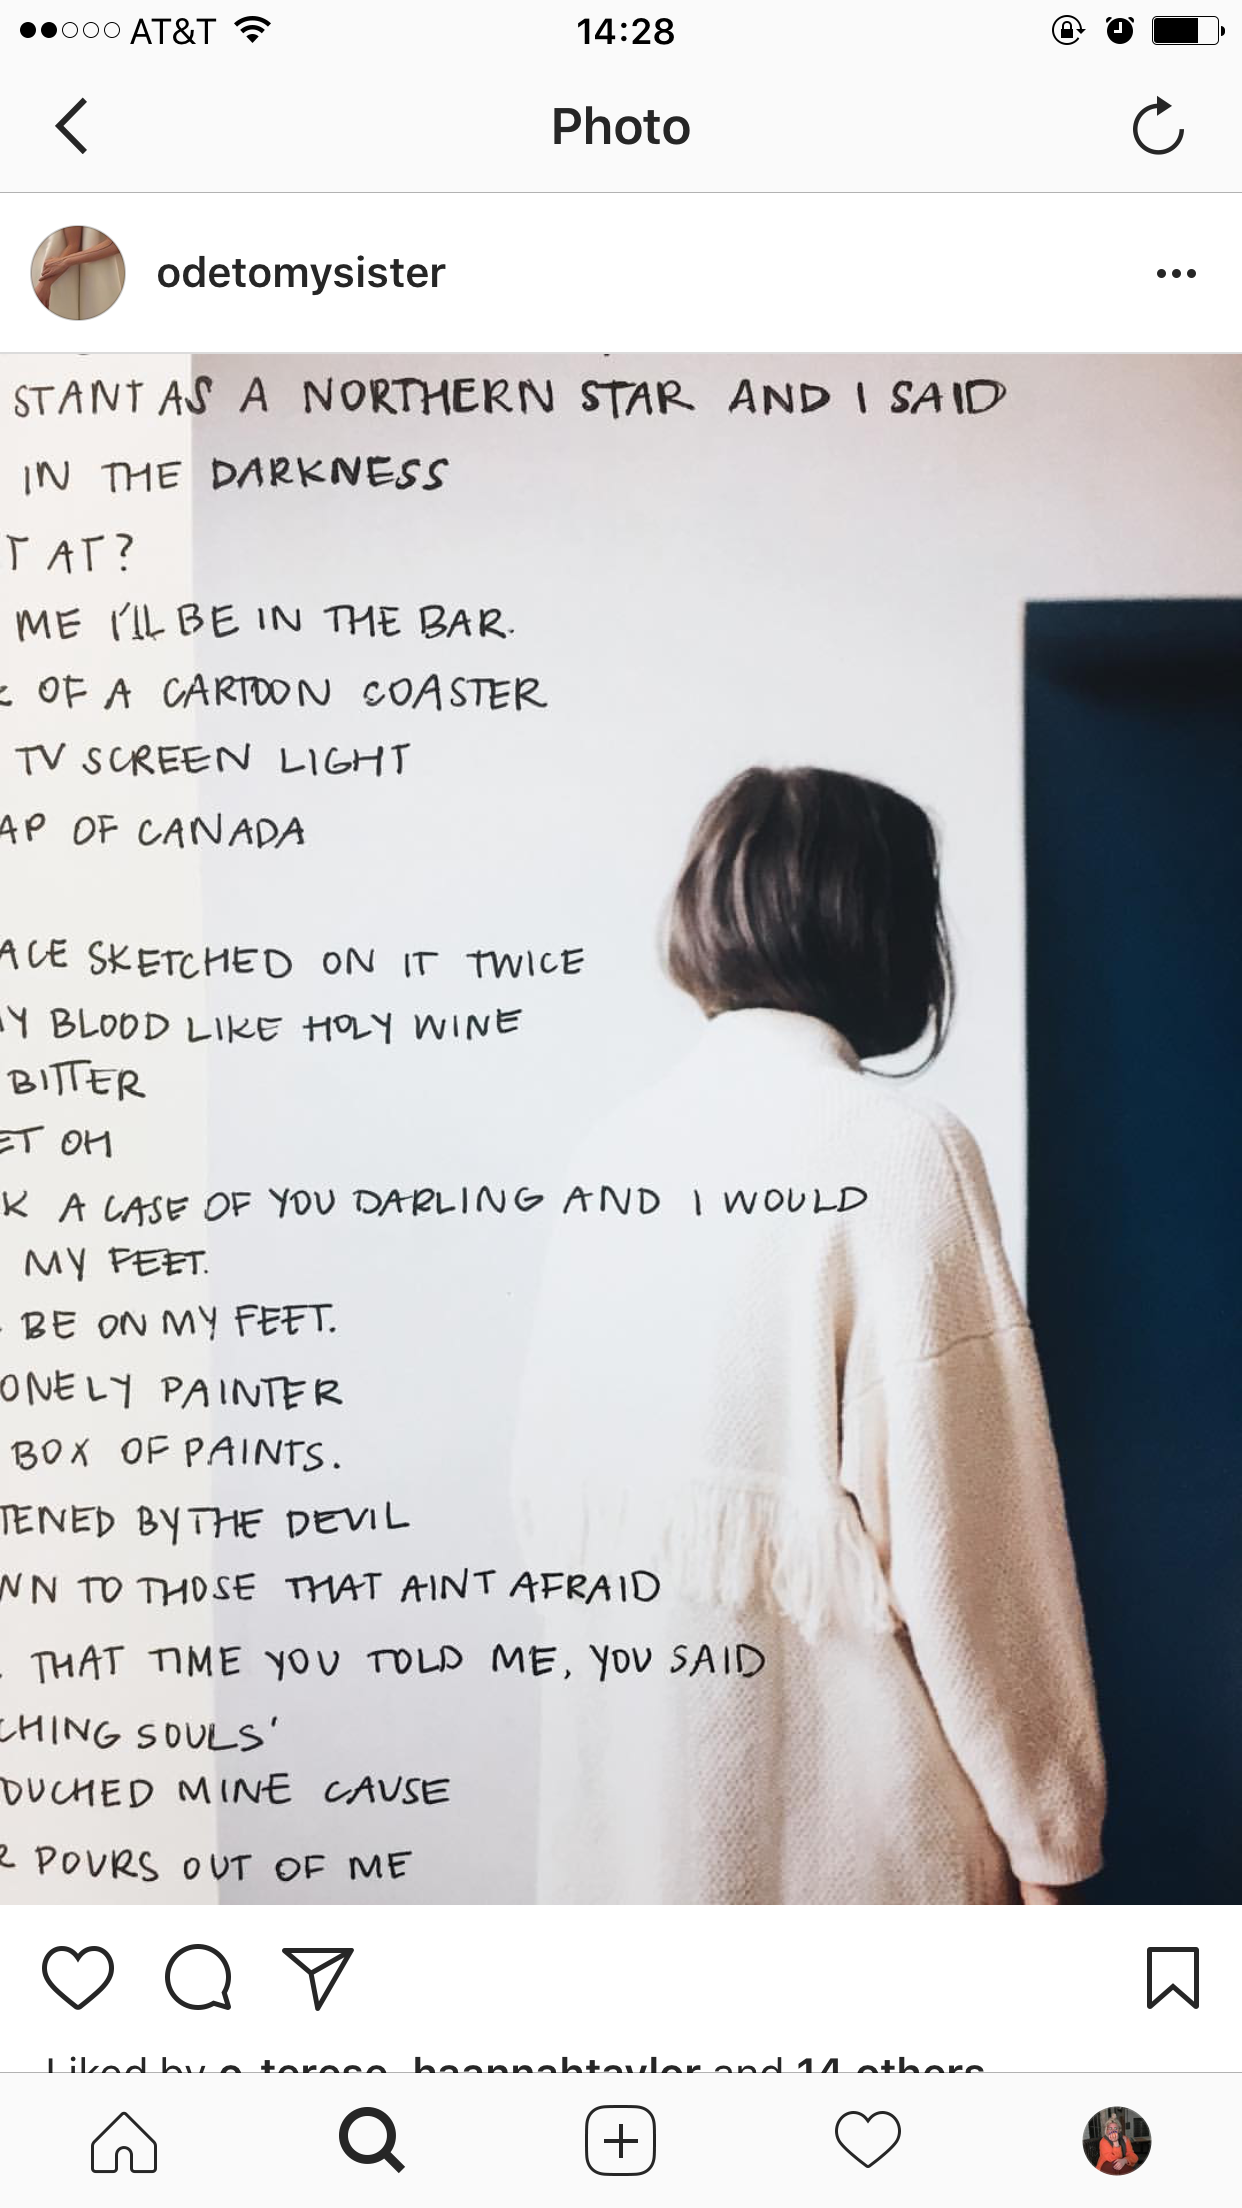 AT&T 14:28
Photo
odetomysister
STANT AS A NORTHERN STAR AND I SAID
IN THE DARKNESS
T AT?
ME I'LL BE IN THE BAR.
OF A CARTOON COASTER
TV SCREEN LIGHT
AP OF CANADA
ACE SKETCHED ON IT TWICE
Y BLOOD LIKE HOLY WINE
BITTER
ET OH
K A CASE OF YOU DARLING AND I WOULD
MY FEET.
BE ON MY FEET.
ONELY PAINTER
BOX OF PAINTS.
TENED BY THE DEVIL
WN TO THOSE THAT AINT AFRAID
THAT TIME YOU TOLD ME, YOU SAID
CHING SOULS'
OUCHED MINE CAUSE
R POURS OUT OF ME
Liked by e_terese, haannahtaylor and 14 others